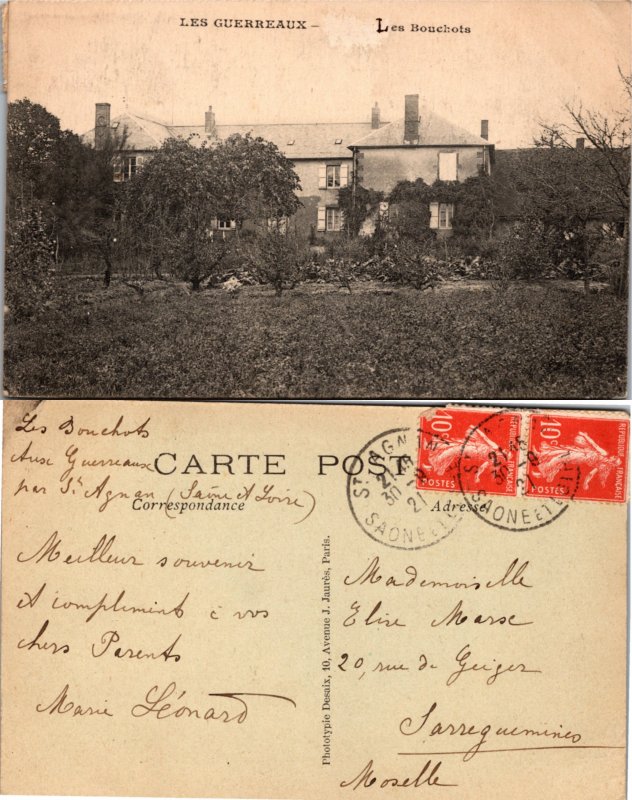 LES GUERREAUX – Les Bouchots
Les Bouchots
Aux Guerreaux
par St Agnan (Saône et Loire)
CARTE POST
Correspondance
Adresse
Meilleur souvenir
et compliments à vos
chers Parents
Marie Léonard
Phototypie Desaix, 10, Avenue J. Jaurès, Paris.
Mademoiselle
Elise Marse
20, rue de Geiger
Sarreguemines
Moselle
ST AGNAN
21
SAONE ET
10c
POSTES
REPUBLIQUE FRANÇAISE
10c
POSTES